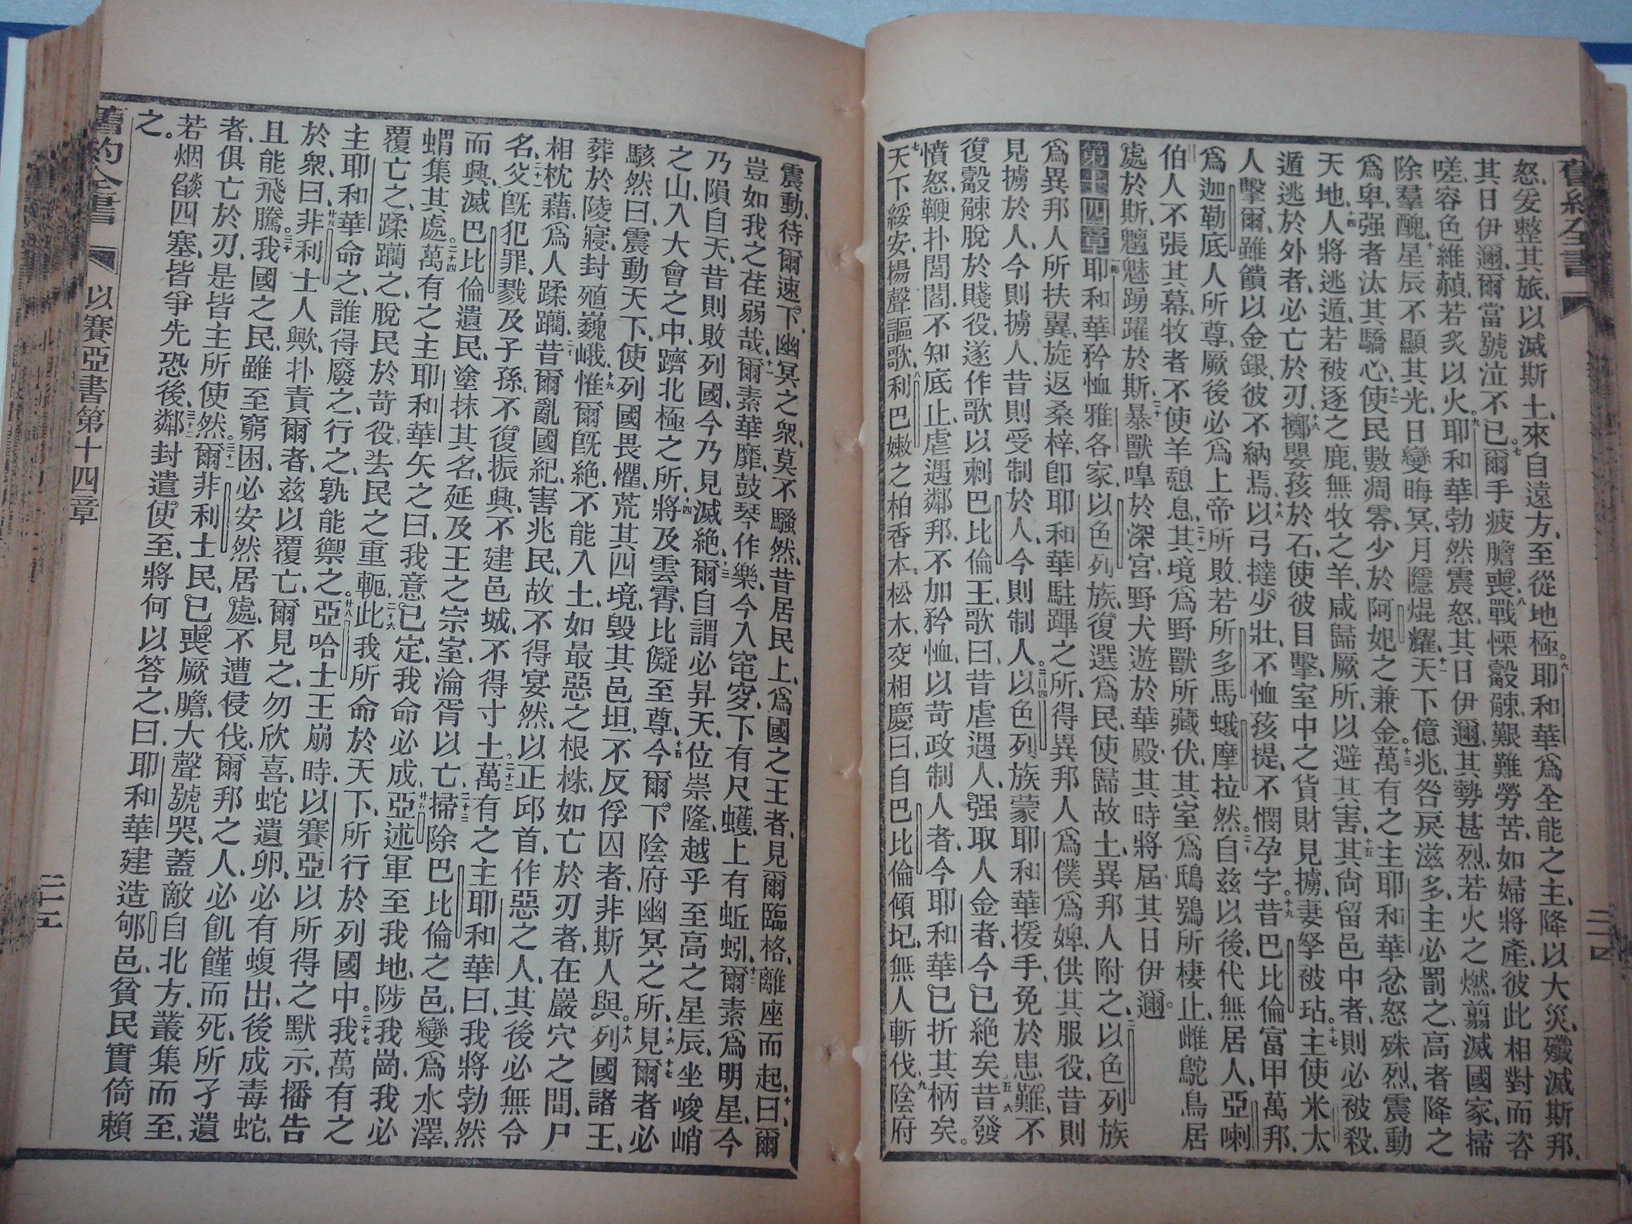 舊約全書
二十四
怒、爰整其旅、以滅斯土、來自遠方、至從地極。六耶和華爲全能之主、降以大災、殲滅斯邦、
其日伊邇、爾當號泣不已。七爾手疲膽喪、八戰慄觳觫、艱難勞苦、如婦將產、彼此相對而咨
嗟、容色維赬、若炙以火。九耶和華勃然震怒、其日伊邇、其勢甚烈、若火之燃、翦滅國家、掃
除羣醜、十星辰不顯其光、日變晦冥、月隱焜耀、十一天下億兆、咎戾滋多、主必罰之、高者降之
爲卑、强者汰其驕心、十二使民數凋零、少於阿妃之兼金。十三萬有之主耶和華、忿怒殊烈、震動
天地、十四人將逃遁、若被逐之鹿、無牧之羊、咸歸厥所、以避其害、十五其尙留邑中者、則必被殺、
遁逃於外者、必亡於刃、十六擲嬰孩於石、使彼目擊、室中之貨財見擄、妻孥被玷。十七主使米太
人擊爾、雖饋以金銀、彼不納焉、十八以弓撻少壯、不恤孩提、不憫孕字。十九昔巴比倫富甲萬邦、
爲迦勒底人所尊、厥後必爲上帝所敗、若所多馬蛾摩拉然。二十自兹以後、代無居人、亞喇
伯人不張其幕、牧者不使羊憩息、二十一其境爲野獸所藏伏、其室爲鴟鴞所棲止、雌鴕鳥居
處於斯、魑魅踴躍於斯、二十二暴獸嘷於深宮、野犬遊於華殿、其時將屆、其日伊邇。
第十四章 一耶和華矜恤雅各家、以色列族、復選爲民、使歸故土、異邦人附之、二以色列族
爲異邦人所扶翼、旋返桑梓、卽耶和華駐蹕之所、得異邦人爲僕爲婢、供其服役、昔則
見擄於人、今則擄人、昔則受制於人、今則制人。三四以色列族蒙耶和華援手、免於患難、不
復觳觫、脫於賤役、遂作歌以刺巴比倫王、歌曰、昔虐遇人、强取人金者、今已絶矣、五六昔發
憤怒、鞭扑閭閻、不知底止、虐遇鄰邦、不加矜恤、以苛政制人者、今耶和華已折其柄矣。
七天下綏安、揚聲謳歌、八利巴嫩之柏香木松木、交相慶曰、自巴比倫傾圮、無人斬伐、九陰府
震動、待爾速下、幽冥之衆、莫不騷然、昔居民上、爲國之王者、見爾臨格、離座而起、十曰、爾
豈如我之荏弱哉、十一爾素華靡、鼓琴作樂、今入窀穸、下有尺蠖、上有蚯蚓、十二爾素爲明星、今
乃隕自天、昔則敗列國、今乃見滅絶、十三爾自謂必昇天、位崇隆、越乎至高之星辰、坐峻峭
之山、入大會之中、躋北極之所、十四將及雲霄、比儗至尊、十五今爾下陰府幽冥之所、十六見爾者必
駭然曰、震動天下、使列國畏懼、十七荒其四境、毀其邑垣、不反俘囚者、非斯人與。十八列國諸王、
葬於陵寢、封殖巍峨、十九惟爾旣絶、不能入土、如最惡之根株、如亡於刃者、在巖穴之間、尸
相枕藉、爲人蹂躪、二十昔爾亂國紀、害兆民、故不得宴然以正邱首、作惡之人、其後必無令
名、二十一父旣犯罪、戮及子孫、不復振興、不建邑城、不得寸土。二十二萬有之主耶和華曰、我將勃然
而興、滅巴比倫遺民、塗抹其名、延及王之宗室、淪胥以亡、二十三掃除巴比倫之邑、變爲水澤、
蝟集其處。二十四萬有之主耶和華矢之曰、我意已定、我命必成、廿五亞述軍至我地、陟我崗、我必
覆亡之、蹂躪之、脫民於苛役、去民之重軛、二十六此我所命於天下、所行於列國中、二十七我萬有之
主耶和華命之、誰得廢之、行之、孰能禦之。廿八亞哈士王崩時、以賽亞以所得之默示、播告
於衆曰、廿九非利士人歟、扑責爾者、兹以覆亡、爾見之、勿欣喜、蛇遺卵、必有蝮出、後成毒蛇、
且能飛騰、三十我國之民、雖至窮困、必安然居處、不遭侵伐、爾邦之人、必飢饉而死、所孑遺
者、俱亡於刃、是皆主所使然。三十一爾非利士民、已喪厥膽、大聲號哭、蓋敵自北方、叢集而至、
若烟燄四塞、皆爭先恐後、三十二鄰封遣使至、將何以答之、曰、耶和華建造郇邑、貧民實倚賴
之。
舊約全書
以賽亞書第十四章
二十五